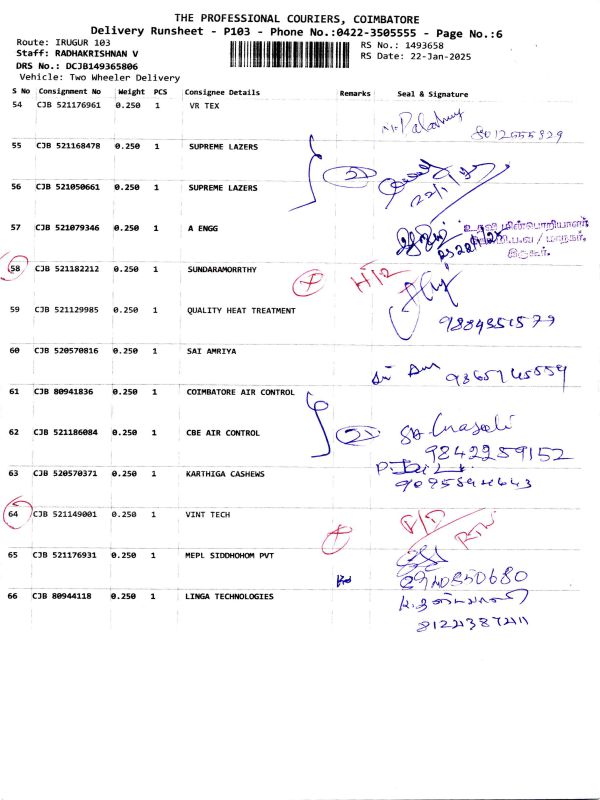 THE PROFESSIONAL COURIERS, COIMBATORE
Delivery Runsheet - P103 - Phone No.:0422-3505555 - Page No.:6
Route: IRUGUR 103
RS No.: 1493658
Staff: RADHAKRISHNAN V
RS Date: 22-Jan-2025
DRS No.: DCJB149365806
Vehicle: Two Wheeler Delivery
S No Consignment No Weight PCS Consignee Details Remarks Seal & Signature
54 CJB 521176961 0.250 1 VR TEX
55 CJB 521168478 0.250 1 SUPREME LAZERS
56 CJB 521050661 0.250 1 SUPREME LAZERS
57 CJB 521079346 0.250 1 A ENGG
உதவி மின்பொறியாளர்
இருகூர்.
58 CJB 521182212 0.250 1 SUNDARAMORRTHY
59 CJB 521129985 0.250 1 QUALITY HEAT TREATMENT
9884351577
60 CJB 520570816 0.250 1 SAI AMRIYA
61 CJB 80941836 0.250 1 COIMBATORE AIR CONTROL
62 CJB 521186084 0.250 1 CBE AIR CONTROL
9842259152
63 CJB 520570371 0.250 1 KARTHIGA CASHEWS
64 CJB 521149001 0.250 1 VINT TECH
65 CJB 521176931 0.250 1 MEPL SIDDHOHOM PVT
66 CJB 80944118 0.250 1 LINGA TECHNOLOGIES